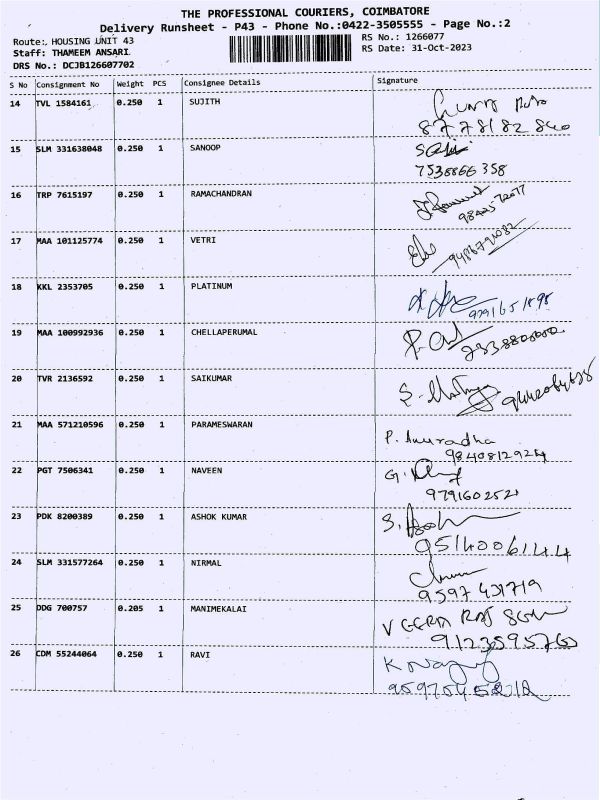 THE PROFESSIONAL COURIERS, COIMBATORE
Delivery Runsheet - P43 - Phone No.:0422-3505555 - Page No.:2
Route: HOUSING UNIT 43 RS No.: 1266077
Staff: THAMEEM ANSARI RS Date: 31-Oct-2023
DRS No.: DCJB126607702
S No Consignment No Weight PCS Consignee Details Signature
14 TVL 1584161 0.250 1 SUJITH
8778182840
15 SLM 331638048 0.250 1 SANOOP
7538866358
16 TRP 7615197 0.250 1 RAMACHANDRAN
17 MAA 101125774 0.250 1 VETRI
9486791082
18 KKL 2353705 0.250 1 PLATINUM
19 MAA 100992936 0.250 1 CHELLAPERUMAL
20 TVR 2136592 0.250 1 SAIKUMAR
21 MAA 571210596 0.250 1 PARAMESWARAN
P. Anuradha
9840812924
22 PGT 7506341 0.250 1 NAVEEN
9791602521
23 PDK 8200389 0.250 1 ASHOK KUMAR
9514006144
24 SLM 331577264 0.250 1 NIRMAL
9597431719
25 DDG 700757 0.205 1 MANIMEKALAI
VEERA RAJ
9123595760
26 CDM 55244064 0.250 1 RAVI